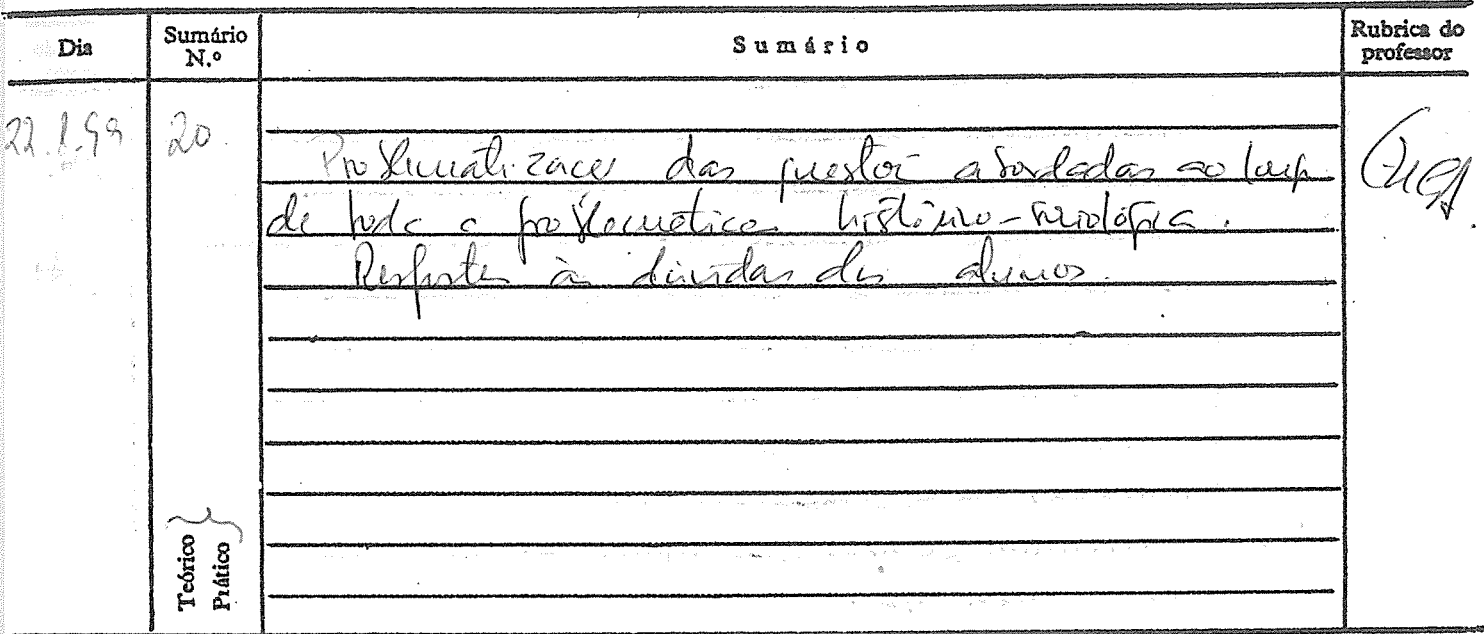 Dia Sumário N.º Sumário Rubrica do professor
22.1.99 20.
Problematização das questões abordadas ao longo
de toda a problemática histórico-sociológica.
Respostas às dúvidas dos alunos.
Teórico
Prático